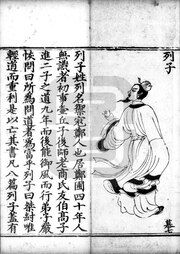 列子
列子姓列名禦寇鄭人也居鄭圃四十年人
無識者初事壺丘子後師老商氏友伯高子
進二子之道九年而後能御風而行弟子嚴
恢問曰所為問道者為富乎列子曰桀紂唯
輕道而重利是以亡其書凡八篇列子蓋有